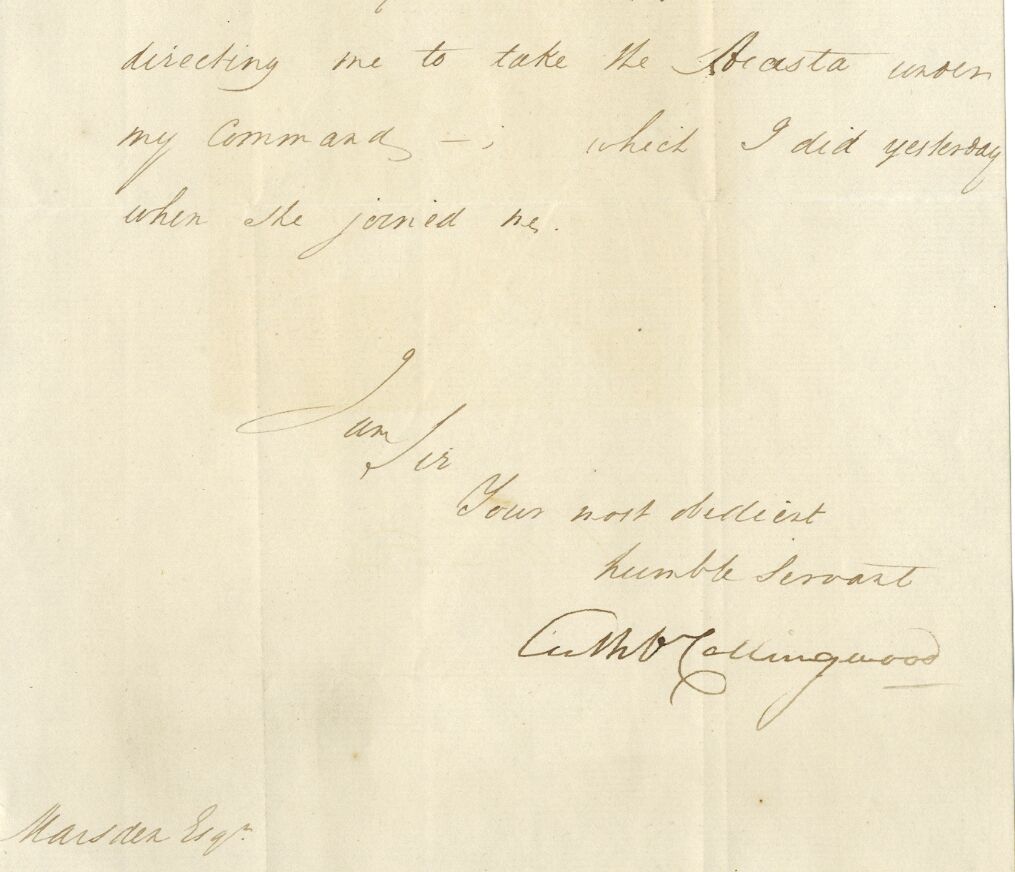 directing me to take the Acasta under
my Command – ; which I did yesterday
when she joined me.
I am
Sir
Your most obedient
humble Servant
Cuthbt Collingwood
Marsden Esqr